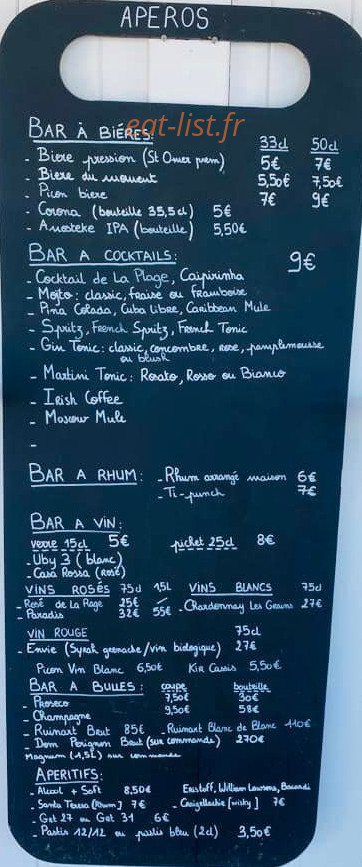 APEROS
eat-list.fr
BAR À BIÉRES:
33cl 50cl
- Biere pression (St Omer prem) 5€ 7€
- Biere du moment 5,50€ 7,50€
- Picon biere 7€ 9€
- Corona (bouteille 35,5cl) 5€
- Anosteke IPA (bouteille) 5,50€
BAR A COCKTAILS: 9€
- Cocktail de La Plage, Caipirinha
- Mojto: classic, fraise ou framboise
- Pina Colada, Cuba Libre, Caribbean Mule
- Spritz, French Spritz, French Tonic
- Gin Tonic: classic, concombre, rose, pamplemousse
ou blush
- Martini Tonic: Rosato, Rosso ou Bianco
- Irish Coffee
- Moscow Mule
-
BAR A RHUM: - Rhum arrangé maison 6€
- Ti-punch 7€
BAR A VIN:
verre 15cl 5€ pichet 25cl 8€
- Uby 3 (blanc)
- Casa Rossa (rosé)
VINS ROSÉS 75cl 1,5L VINS BLANCS 75cl
- Rosé de La Plage 25€ - Chardonnay Les Grains 27€
- Paradis 32€ 55€
VIN ROUGE 75cl
- Envie (Syrah grenache/vin biologique) 27€
Picon Vin Blanc 6,50€ Kir Cassis 5,50€
BAR A BULLES: coupe bouteille
- Proseco 7,50€ 30€
- Champagne 9,50€ 58€
- Ruinart Brut 85€ - Ruinart Blanc de Blanc 110€
- Dom Perignon Brut (sur commande) 270€
Magnum (1,5L) sur commande
APERITIFS:
- Alcool + Soft 8,50€ Eristoff, William Lawsons, Bacardi
- Santa Teresa [Rhum] 7€ - Craigellachie [wisky] 7€
- Get 27 ou Get 31 6€
- Pastis 12/12 ou pastis bleu (2cl) 3,50€